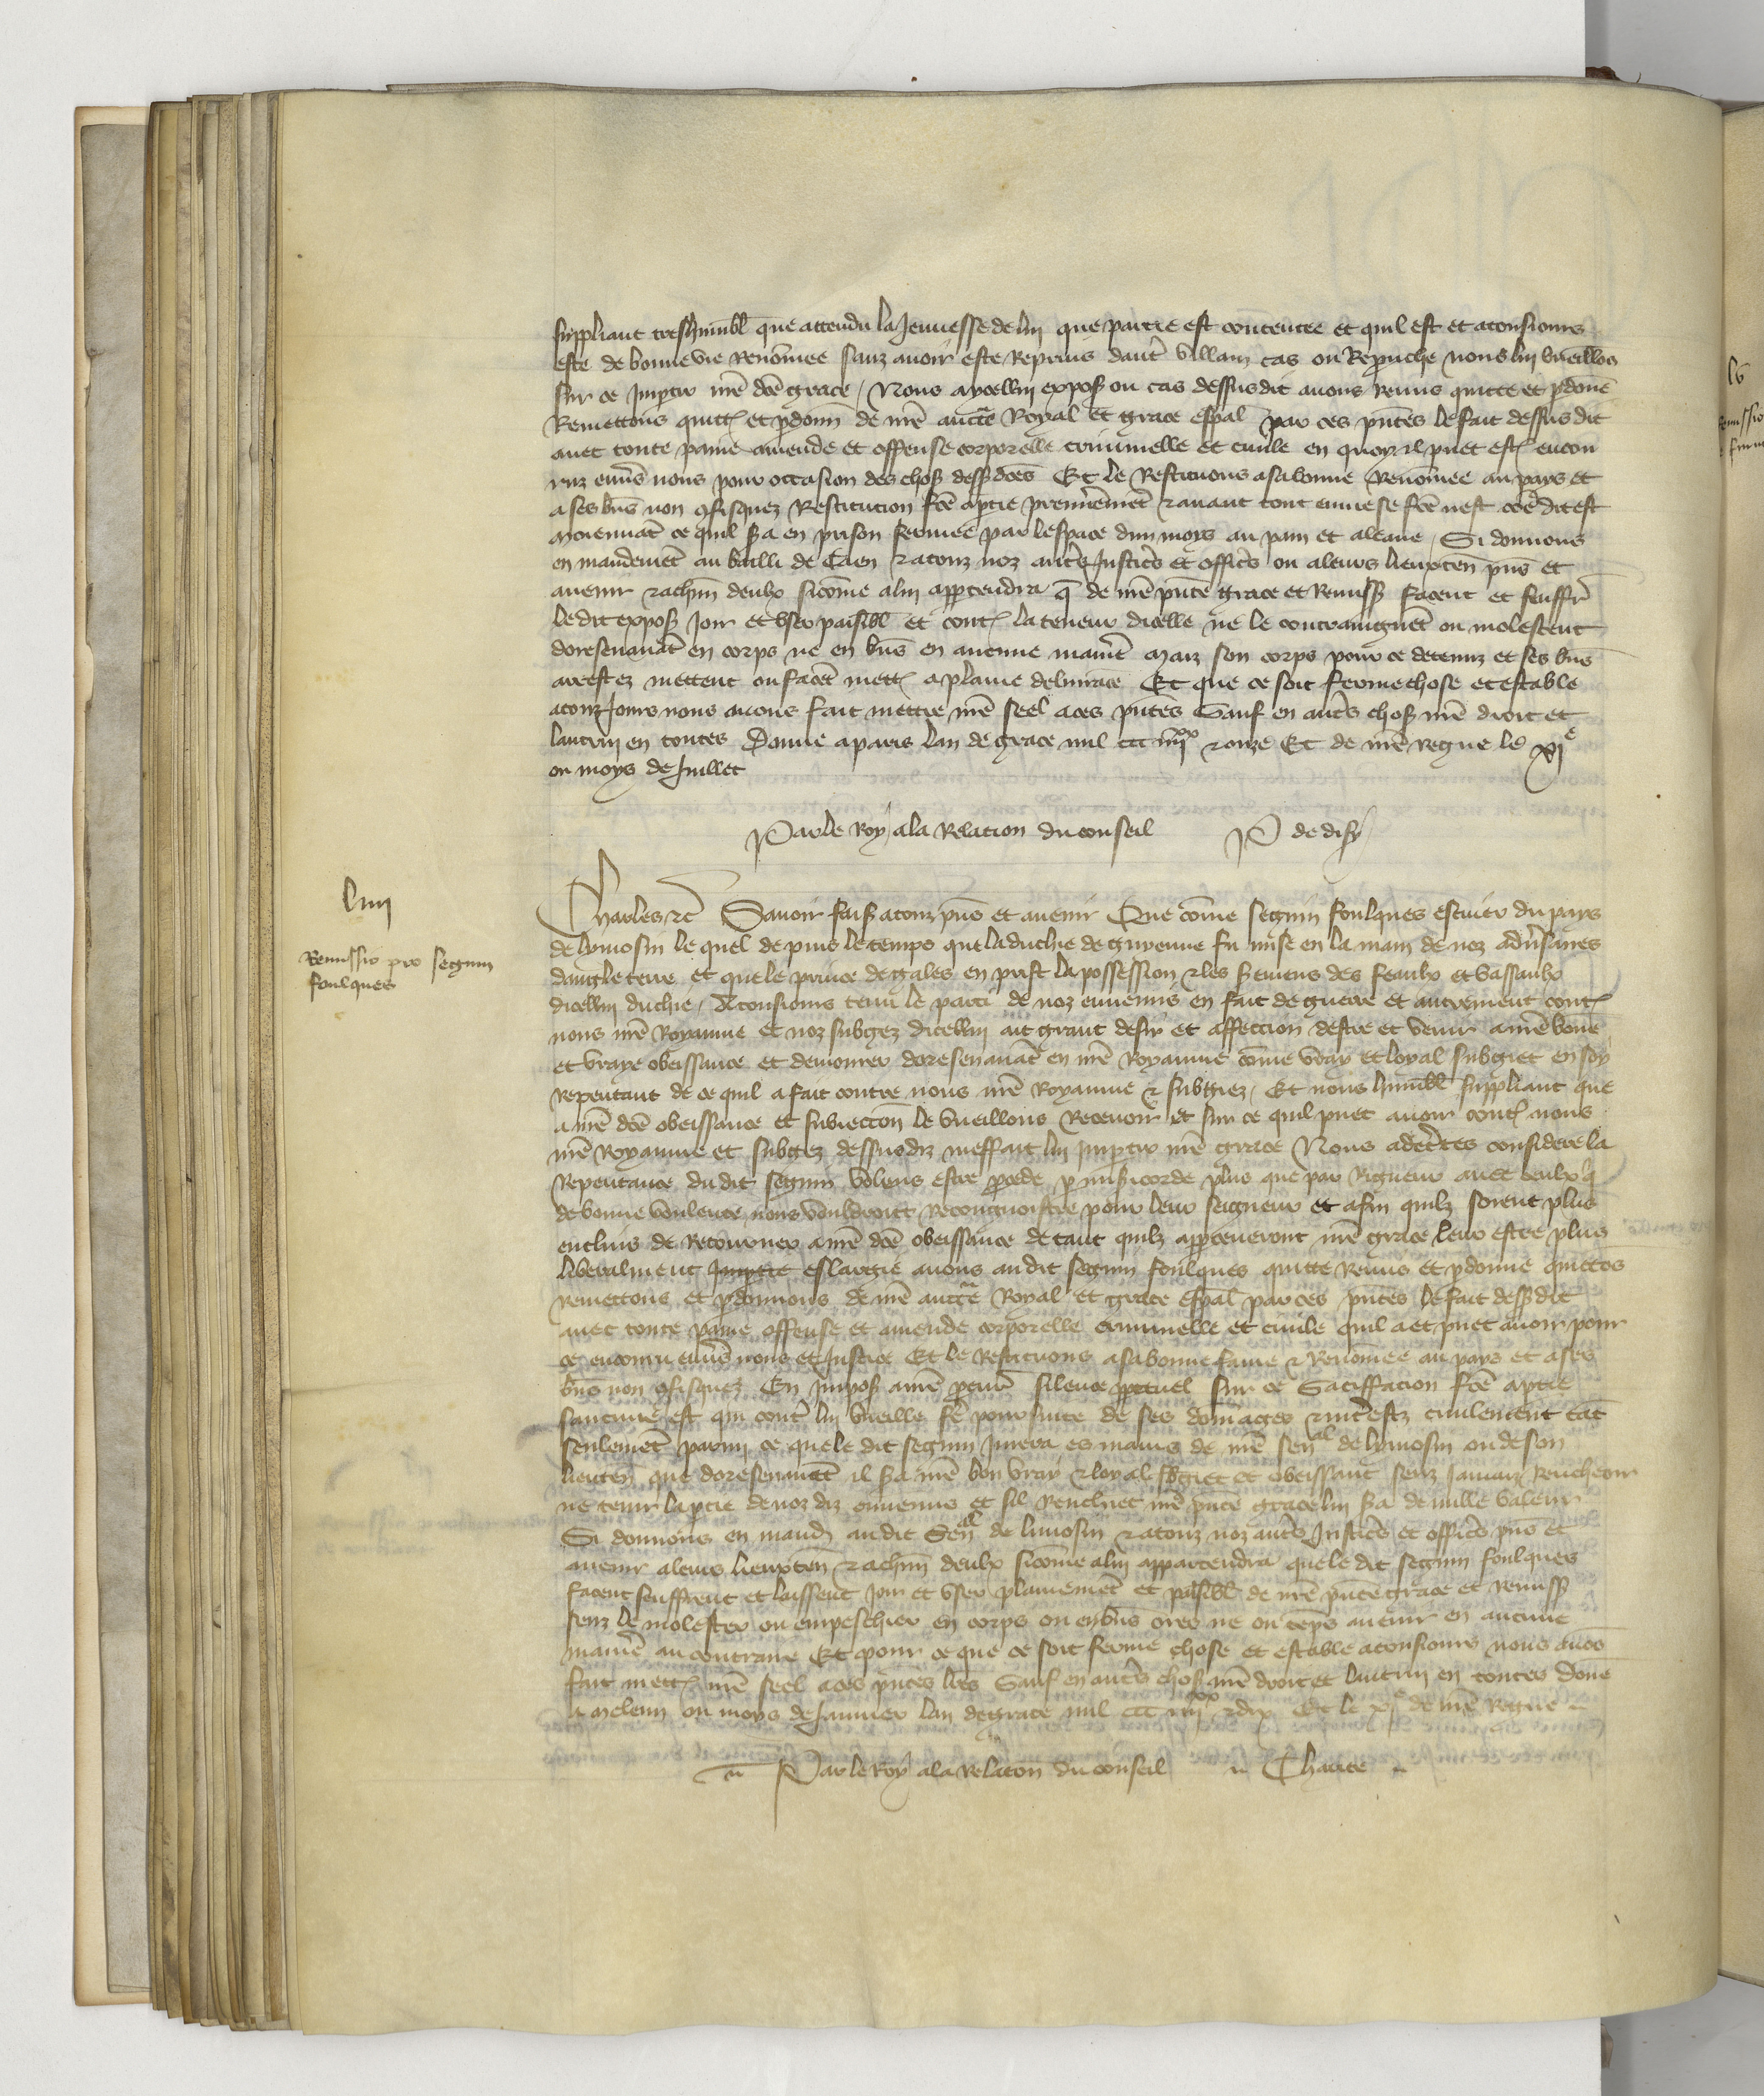 suppliant treshumbl que attendu la Jeunesse de luy que partie est contentee et quil est et a tousiours
este de bonne vie renomee sanz avoir este Reprins dautr villain cas ou Reprouche nous lui vueillons
sur ce Impartir nre dce grace / Nous aycellui exposs ou cas dessusdit avons remis quitte et pdone
Remettons quitt et pdonn de nre aucte Royal et grace espal par ces pntes le fait dessus dit
avec toute paine amende et offense corporelle criminelle et civile en quoy il puet estr encou
ruz envs nous pour occasion des choses dessdces Et le Restituons a sa bonne Renomee au pays et
a ses bns non 9fisquez Restitution fce a ptie premierement et avant tout euvre se fce nest coe dit est
moiennat ce quil sa en prison fermee par lespace dun moys au pain et a leaue / Si donnons
en mandemet au bailli de Caen et a touz noz autrs Justicrs et officrs ou a leurs lieuxten pns et
avenir et a chun deulx sicome a lui apptendra q de nre pnte grace et Remiss facent et seuffr
ledit exposs Joir et user paisibl et contr la teneur dicelle ne le contraingnet ou molestent
doresenavat en corps ne en bns en aucune manie Maiz son corps pour ce detenuz et ses bns
arrestez mettent ou facet mettr a plaine delivrace Et que ce soit ferme chose et estable
a touz Jours nous avons fait mettre nre seel a ces pntes Sauf en autrs choses nre droit et
lautrui en toutes Donne a paris lan de grace mil ccc iiiixx et onze Et de nre regne le xie
ou moys de Juillet
Par le Roy a la Relacion du conseil P de disy
liiii
Remissio pro seguin
foulques
Charles etc Savoir faiss a touz pns et avenir Que come seguin foulques escuier du pays
de lymosin le quel de puis le temps que la duchie de guyenne fu mise en la main de noz adversaires
dangleterre et que le prince de gales en prist la possession et les sermens des feaulx et vassaulx
dicellui duchie / A tousiours tenu le parti de noz ennemis en fait de guerre et autrement contr
nous nre Royaume et noz subgez dicellui ait grant desir et affeccion destre et venir a nre bone
et vraye obeissance et demourer doresenavat en nre Royaume come vray et loyal subgiet en soy
repentant de ce quil a fait contre nous nre Royaume et subgiez / Et nous humbl suppliant que
a nre dce obeissance et subieccon le vueillons Recevoir et sur ce quil puet avoir contr nous
nre Royaume et subgez dessusdiz meffait lui Impartir nre grace Nous adecertes considere la
Repentance du dit seguin volens estre procede p misicorde plus que par Rigueur avec ceulx q
de bonne voulente nous vouldroit recongnoistre pour leur seigneur et afin quilz soient plus
enclins de Retourner a nre dce obeissance de tant quilz appceveront nre grace leur estre plus
liberalment Impartie eslargie avons audit seguin foulques quitte remis et pdonne quittos
remettons et pdonnons de nre aucte Royal et grace espal par ces pntes le fait dessdit
avec toute paine offense et amende corporelle criminelle et civile quil a et puet avoir pour
ce encouru envs nous et Justice Et le Restituons a sa bonne fame et Renomee au pays et a ses
bns non 9fisquez En imposs a nre procur silence ppetuel sur ce Satiffacion fce a ptie
se aucune est qui contr lui vueille fe poursuite de ses domages et interestz civilement tat
seulemet parmi ce que le dit seguin Jurera es mains de nre senal de lymosin ou de son
lieuten que doresenavat il sa nre bon vray et loyal sbgiet et obeissant senz Jamaiz Rencheoir
ne tenir la ptie de noz diz ennemis et sil Renchiet nre pnte grace lui sa de nulle valeur
Si donnons en mand audit Senal de limosin et a touz noz autrs Justicrs et officrs pns et
avenir a leurs lieuxten et a chun deulx sicome a lui appartendra que le dit seguin foulques
facent seuffrent et laissent Joir et user plainemet et paisibl de nre pnte grace et remiss
senz le molester ou empeschier en corps ou en bns ores ne ou teps avenir en aucune
manie au contraire Et pour ce que ce soit ferme chose et estable a tousiours nous avos
fait mettr nre seel a ces pntes lres Sauf en autrs choses nre droit et lautrui en toutes Done
a meleun ou moys de Januier lan de grace mil ccc iiiixx et dix Et le xie de nre Regne
Par le Roy a la relacon du conseil Charite